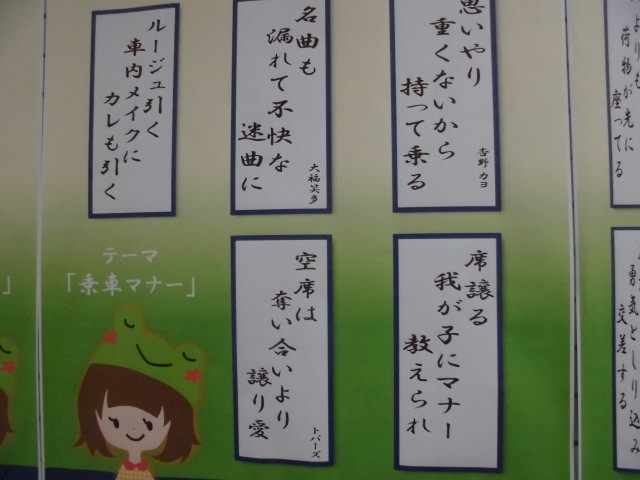 よりも
荷物が先に
座ってる
思いやり
重くないから
持って乗る
杏野カヨ
名曲も
漏れて不快な
迷曲に
大福笑多
ルージュ引く
車内メイクに
カレも引く
勇気としり込み
交差する
席譲る
我が子にマナー
教えられ
空席は
奪い合いより
譲り愛
トパーズ
テーマ
「乗車マナー」
」